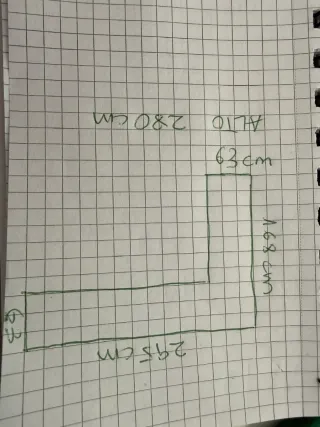 ALTO 280 cm
63 cm
168 cm
295 cm